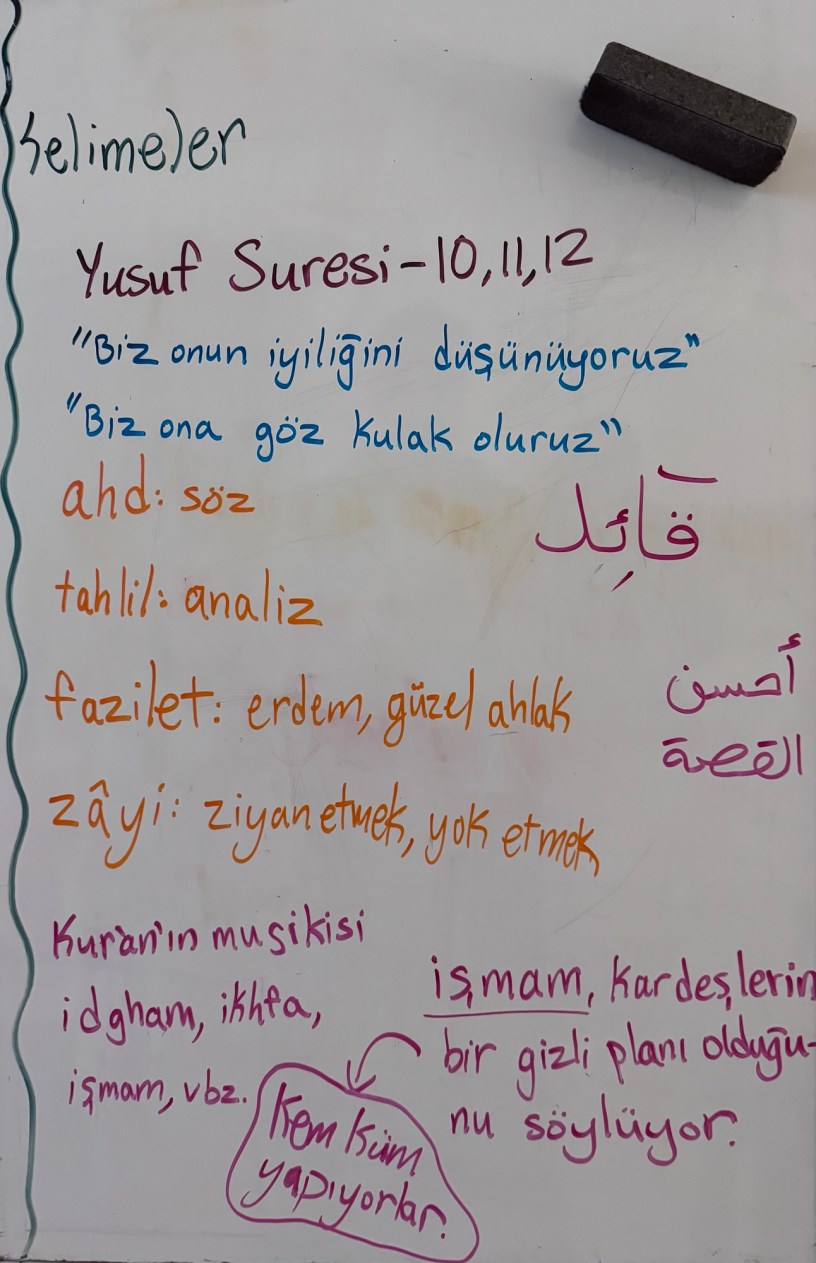 Kelimeler
Yusuf Suresi-10,11,12
"Biz onun iyiliğini düşünüyoruz"
"Biz ona göz kulak oluruz"
ahd: söz
قآئِل
tahlil: analiz
fazilet: erdem, güzel ahlak
أحسن
القصة
zâyi: ziyan etmek, yok etmek
Kur'an'ın musikisi
idgham, ikhfa,
işmam, vbz.
işmam, kardeşlerin
bir gizli planı olduğu-
nu söylüyor.
Kem küm
yapıyorlar.